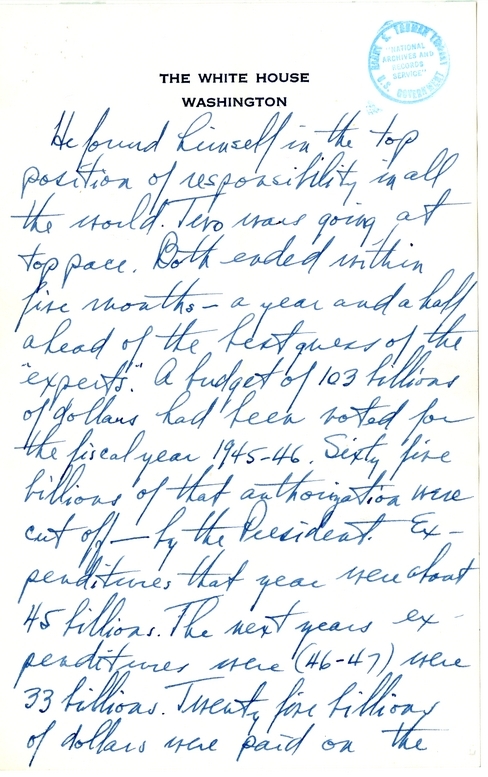 HARRY S. TRUMAN LIBRARY
"NATIONAL
ARCHIVES AND
RECORDS
SERVICE"
U.S. GOVERNMENT
THE WHITE HOUSE
WASHINGTON
He found himself in the top
position of responsibility in all
the world. Two wars going at
top pace. Both ended within
five months - a year and a half
ahead of the best guess of the
"experts". A budget of 103 billions
of dollars had been voted for
the fiscal year 1945-46. Sixty five
billions of that authorization were
cut off - by the President. Ex-
penditures that year were about
45 billions. The next years ex-
penditures were (46-47) were
33 billions. Twenty five billions
of dollars were paid on the